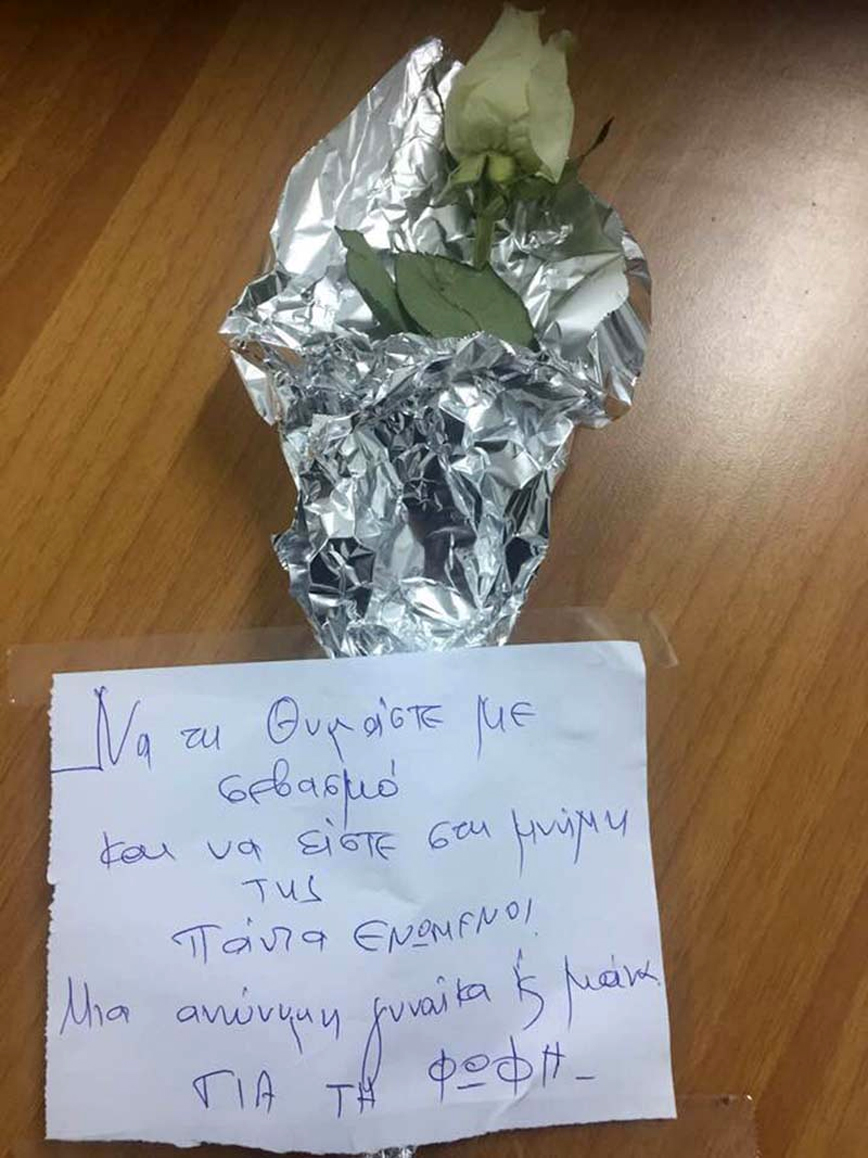 Να τη θυμάστε με
σεβασμό
και να είστε στη μνήμη
της
Πάντα ΕΝΩΜΕΝΟΙ
Μια ανώνυμη γυναίκα κ μάνα.
ΓΙΑ ΤΗ ΦΩΦΗ_